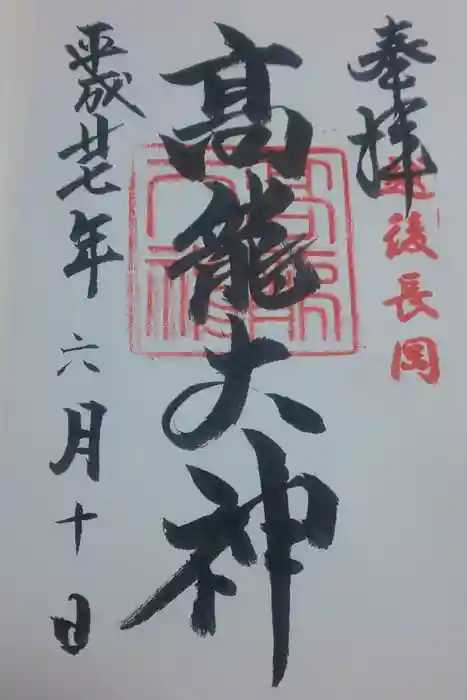 奉拝
越後長岡
髙龍大神
平成廿七年六月十日